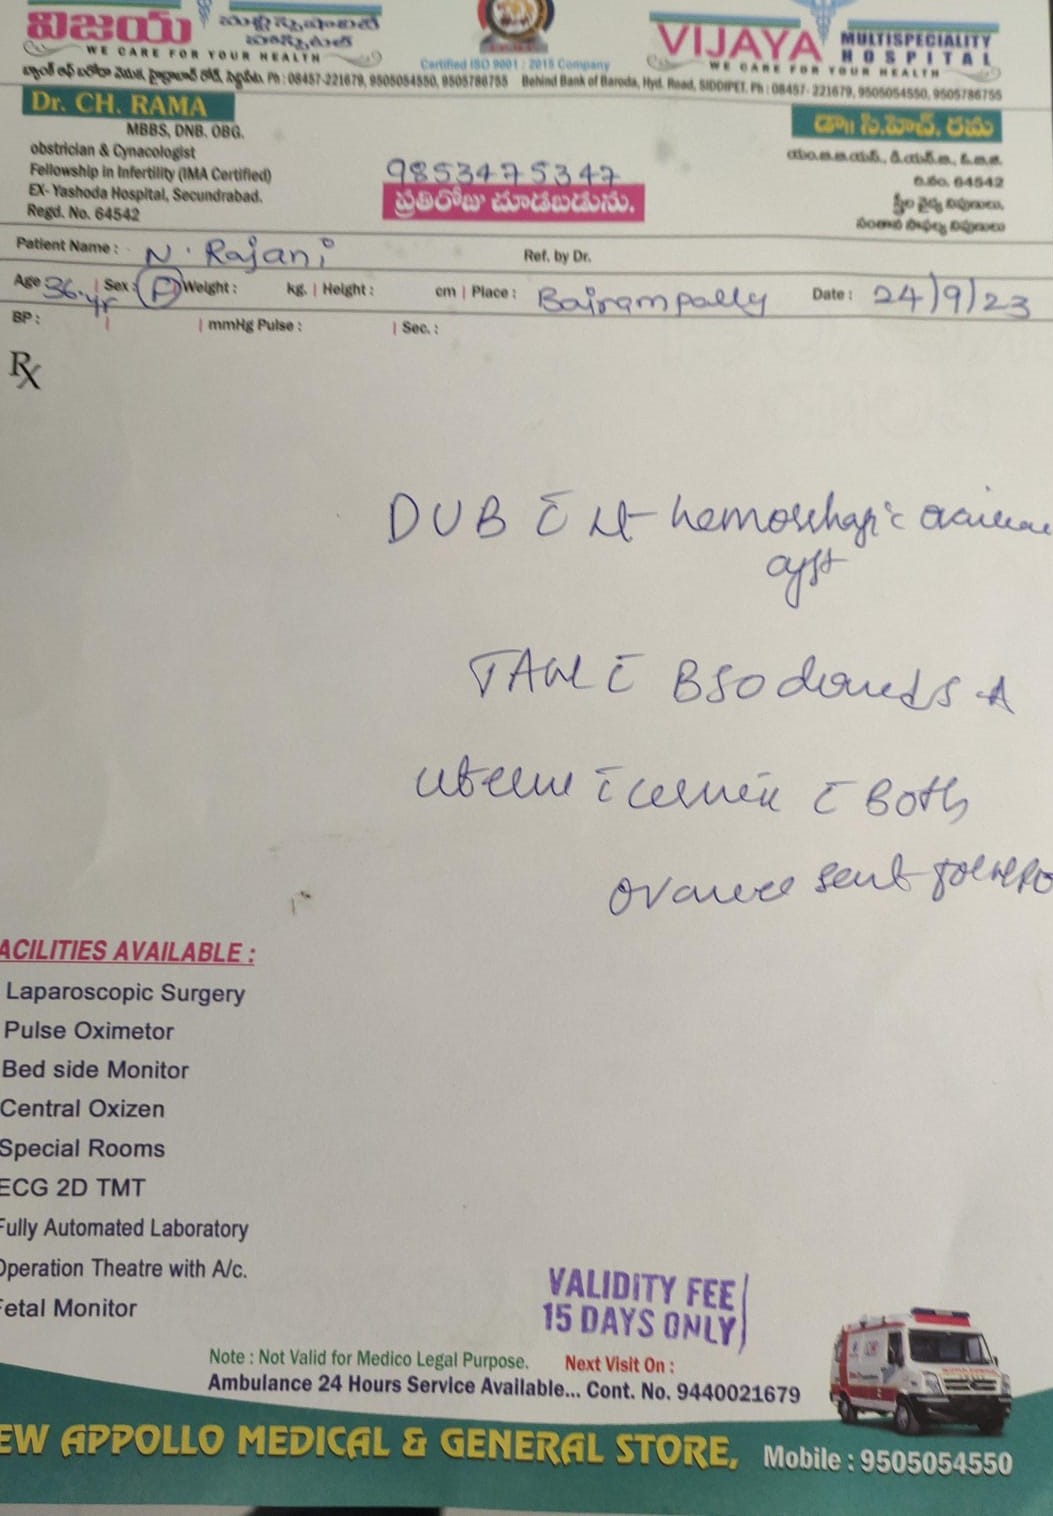 విజయ మల్టీస్పెషాలిటీ హాస్పిటల్
WE CARE FOR YOUR HEALTH
Certified ISO 9001 : 2015 Company
VIJAYA MULTISPECIALITY HOSPITAL
WE CARE FOR YOUR HEALTH
బ్యాంక్ ఆఫ్ బరోడా వెనుక, హైద్రాబాద్ రోడ్, సిద్దిపేట. Ph : 08457-221679, 9505054550, 9505786755 Behind Bank of Baroda, Hyd. Road, SIDDIPET. Ph : 08457- 221679, 9505054550, 9505786755
Dr. CH. RAMA
MBBS, DNB. OBG.
obstrician & Cynacologist
Fellowship in Infertility (IMA Certified)
EX- Yashoda Hospital, Secundrabad.
Regd. No. 64542
9853475347
ప్రతిరోజు చూడబడును.
డా॥ సి.హెచ్. రమ
యం.బి.బి.యస్., డి.యన్.బి., ఓ.బి.జి.
రి.నెం. 64542
స్త్రీల వైద్య నిపుణులు,
సంతాన సాఫల్య నిపుణులు
Patient Name : N. Rajani Ref. by Dr.
Age : 36.yr | Sex : F Weight : kg. | Height : cm | Place : Bairampally Date : 24/9/23
BP : | | mmHg Pulse : | Sec. :
Rx
DUB c̄ Lt hemorrhagic ovarian
cyst
TAH c̄ BSO done
uterus c̄ cervix c̄ Both
ovaries sent for HPE
ACILITIES AVAILABLE :
Laparoscopic Surgery
Pulse Oximetor
Bed side Monitor
Central Oxizen
Special Rooms
ECG 2D TMT
Fully Automated Laboratory
Operation Theatre with A/c.
Fetal Monitor
VALIDITY FEE
15 DAYS ONLY
Note : Not Valid for Medico Legal Purpose. Next Visit On :
Ambulance 24 Hours Service Available... Cont. No. 9440021679
EW APPOLLO MEDICAL & GENERAL STORE, Mobile : 9505054550